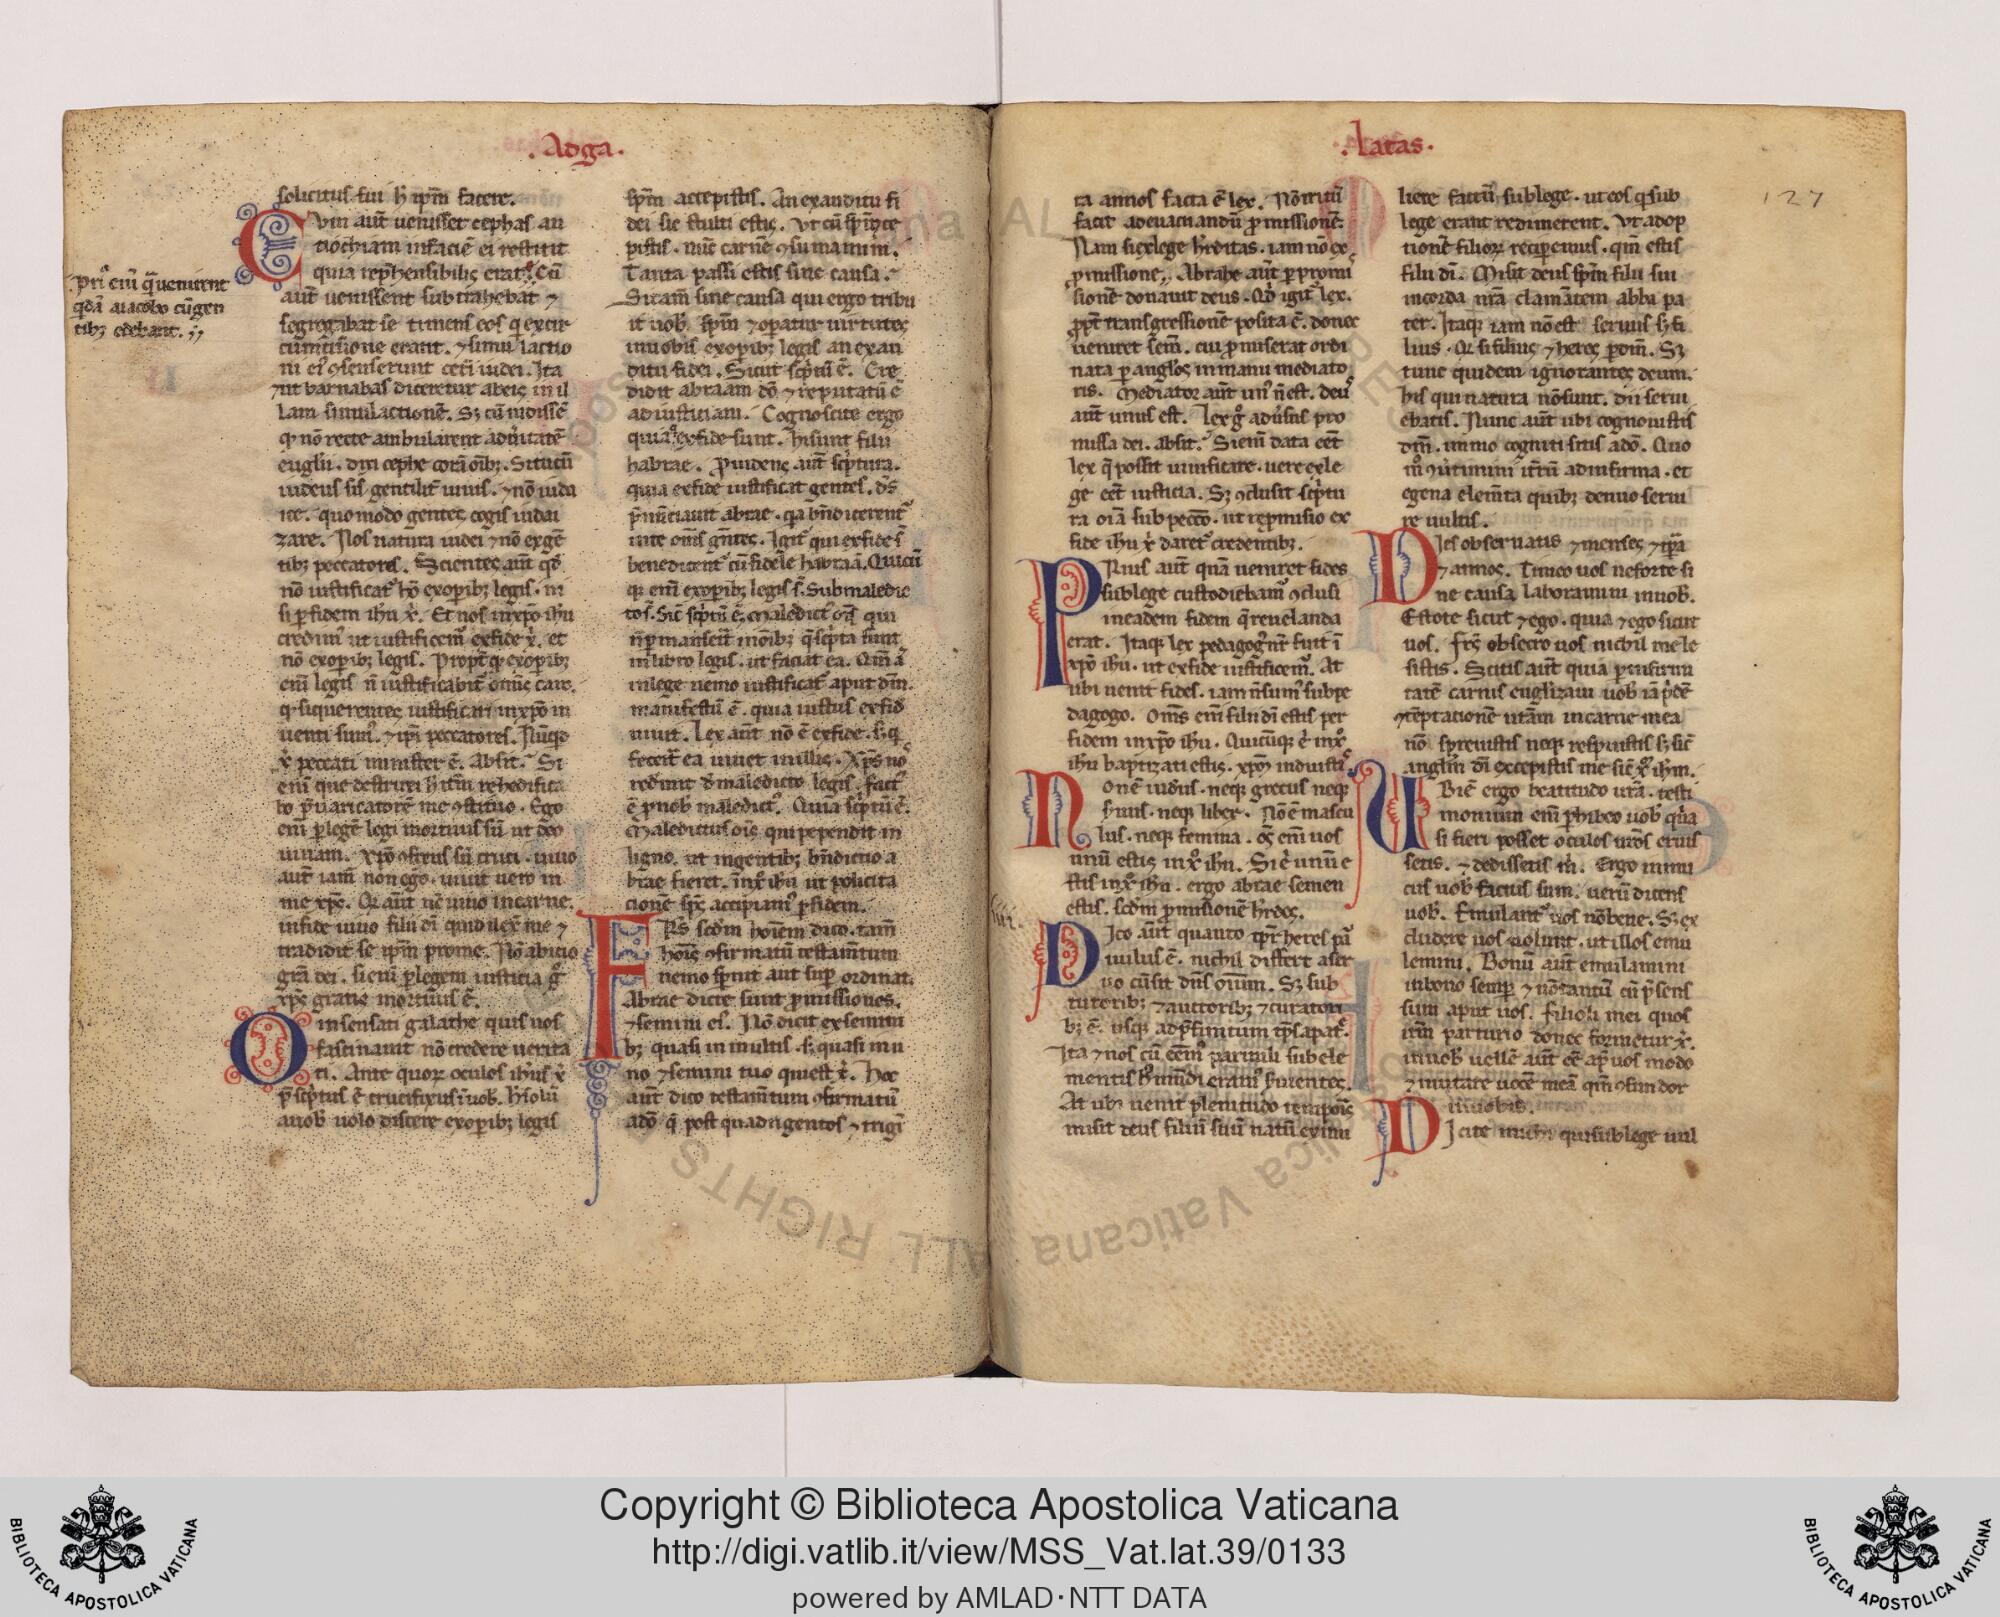 .Adga.
solicitus fui h̄ ip̄m facere.
Cvm aut̄ uenisset cephas an
tiochiam infaciē ei restitit
quia rep̄hensibilis erat. Cū
aut̄ uenissent subtrahebat ⁊
segregabat se timens eos q̄ excir
cumcisione erant. ⁊ simulatio
ut barnabas diceretur abeis in il
lam simulactionē. Sꝫ cū uidissē
ꝙ nō recte ambularent aduitatē
euglii. dixi cephe corā oībꝫ. Si tu cū
iudeus sis gentilit̄ uiuis. ⁊ nō iuda
ice. quomodo gentes cogis iudai
zare. Nos natura iudei ⁊ nō exgē
tibꝫ peccatores. Scientes aut̄ qđ
nō iustificat̄ hō exoꝑibꝫ legis. ni
si ꝑ fidem ihu x̄. Et nos inxp̄o ihu
credim̄ ut iustificem̄ exfide x̄. et
nō exoꝑibꝫ legis. Propt̄ ꝙ exoꝑibꝫ
enī legis n̄ iustificabit̄ omīs caro.
ꝙ si querentes iustificari inxp̄o in
uenti sum̄. ⁊ ip̄i peccatores. Nūqđ
x̄ peccati minister ē. Absit. Si
enī que destruxi h̄ itm̄ rehedifica
bo p̄uaricatorē me ꝯstituo. Ego
enī ꝑ legē legi mortuus sū ut deo
uiuam. xp̄o ꝯfixus sū cruci. uiuo
aut̄ iam non ego. uiuit uero in
me xp̄c. Qđ aut̄ nc̄ uiuo incarne.
infide uiuo filii dī qui dilex̄ me ⁊
tradidit se ip̄m prome. Nō abicio
grā dei. si enī ꝑ legem iusticia ḡ
xp̄c gratis mortuus ē.
O insensati galathe quis uos
fascinauit nō credere uerita
ti. Ante quoꝝ oculos ihus x̄
p̄sc̄ptus ē crucifixus ī uob̄. H̄ solū
auob̄ uolo discere exoꝑibꝫ legis
pri enī q̄ uenirent
qđā aiacobo cū gen
tibꝫ edebant.
sp̄m accepistis. An exauditu fi
dei sic stulti estis. Vt cū sp̄u ince
pistis. nūc carnē ꝯsumamini.
Tanta passi estis sine causa.
Si tam̄ sine causa qui ergo tribu
it uob̄ sp̄m ⁊ opatur uirtutes
inuobis exoꝑibꝫ legis an exau
ditu fidei. Sicut sc̄ptū ē. Cre
didit abraam dō ⁊ reputatū ē
ad iusticiam. Cognoscite ergo
quia q̄ exfide sunt. hi sunt filii
habrae. Prouidens aut̄ sc̄ptura.
quia exfide iustificat gentes. dˢ
p̄nūciauit abrae. qa bn̄dicerent̄
inte om̄s gn̄tes. Igit̄ qui exfide s̄
benedicent̄ cū fidele habraā. Quicū
ꝙ enī exoꝑibꝫ legis s̄. Submaledic
to s̄. Sic̄ sc̄ptū ē. Maledict̄ om̄s qui
n̄ ꝑmanserit̄ inoībꝫ q̄ sc̄pta sunt
in libro legis. ut faciat ea. Qm̄ ā
inlege nemo iustificat̄ aput dm̄.
manifestū ē. quia iustus exfid
uiuit. Lex aut̄ nō ē exfide. sꝫ q̄
fecerit̄ ea uiuet inillis. Xp̄s nos
redimit de maledicto legis. fact̄
ē ꝓnob̄ maledict̄. Quia sc̄ptū ē.
Maledictus oīs qui pependit in
ligno. ut ingentibꝫ bn̄dictio a
brae fieret. inx̄ ihu ut policita
cionē sp̄s accipiam̄ ꝑ fidem.
FRs̄ scđm hoīem dico. tam̄
hoīs ꝯfirmatū testam̄tum
nemo sp̄nit aut sup̄ ordinat.
Abrae dicte sunt ꝓmissiones.
⁊ semini eī. Nō dicit ex semini
bꝫ quasi in multis. sꝫ quasi inu
no ⁊ semini tuo qui est x̄. Hoc
aut̄ dico testam̄tum ꝯfirmatū
adō q̄ post quadrigentos ⁊ trigī
.latas.
127
ta annos facta ē lex. Nō irritū
facit adeuacuandū ꝓmissionē.
Nam si exlege h̄ditas. iam nō ex
ꝓmissione. Abrahe aut̄ ꝑ promi
sionē donauit deus. Qđ igit̄ lex.
ꝓpt̄ transgressionē posita ē. donec
ueniret sem̄. cui ꝓmiserat ordi
nata ꝑ anglōs inmanu mediato
ris. Mediator aut̄ un̄ n̄ est. deus
aut̄ unus est. Lex ḡ aduersus pro
missa dei. absit. Si enī data eēt
lex q̄ possit uiuificare. uere exle
ge eēt iusticia. Sꝫ ꝯclusit sc̄ptu
ra oīa sub pecc̄o. ut repmisio ex
fide ihu x̄ daret̄ credentibꝫ.
PRius aut̄ quā ueniret fides
sublege custodiebam̄ ꝯclusi
in eadem fidem q̄ reuelanda
erat. Itaqꝫ lex pedagoḡ nr̄ fuit ī
xp̄o ihu. ut exfide iustificem̄. At
ubi uenit fides. iam n̄ sum̄ subpe
dagogo. Om̄s enī filii dī estis per
fidem inxp̄o ihu. Quicūqꝫ ē inx̄
ihu baptizati estis. xp̄m induisti.
None iudeus. neqꝫ grecus neqꝫ
seruus. neqꝫ liber. Nō ē mascu
lus. neqꝫ femina. oēs enī uos
unū estis inx̄ ihu. Si ē unū e
stis inx̄ ihu. ergo abrae semen
estis. scđm ꝓmissionē h̄des.
iiii.
DIco aut̄ quanto tp̄r heres pa
ruulus ē. nichil differt aser
uo cū sit dn̄s oīum. Sꝫ sub
tutoribꝫ ⁊ auctoribꝫ ⁊ curatori
bꝫ ē. usqꝫ adp̄finitum tp̄s apat̄.
Ita ⁊ nos cū eēm̄ paruuli subele
mentis h̄ mūdi eram̄ s̄uientes.
At ubi uenit plenitudo tempois
misit deus filiū suū natū ex mu
liere factū sublege. ut eos q̄ sub
lege erant redimeret. Vt adop
tionē filioꝝ reciperemus. qm̄ estis
filii dī. Misit deus sp̄m filii sui
incorda nrā clamātem abba pa
ter. Itaqꝫ iam nō est seruus sꝫ fi
lius. Qđ si filius ⁊ heres ꝑ dm̄. Sꝫ
tunc quidem ignorantes deum.
his qui natura nō sunt. dii serui
ebatis. Nunc aut̄ ubi cognouistis
dm̄. immo cogniti sitis adō. Quo
m̄ ꝯuertimini it̄rū adinfirma. et
egena elem̄ta quibꝫ denuo serui
re uultis.
DIes obseruatis ⁊ menses ⁊ tp̄ra
⁊ annos. Timeo uos neforte si
ne causa laborauim inuob̄.
Estote sicut ⁊ ego. quia ⁊ ego sicut
uos. Frēs obsecro uos nichil me le
sistis. Scitis aut̄ quia ꝑ infirmi
tatē carnis euglizaui uob̄ iā p̄dē
⁊ tēptationē uram incarne mea
nō spreuistis neqꝫ respuistis sꝫ sic̄
anglm̄ dī excepistis me sic̄ x̄ ihm̄.
VBiē ergo beatitudo urā. testi
monium enī phibeo uob̄ quia
si fieri posset oculos urōs eruis
setis. ⁊ dedissetis m̄. Ergo inimi
cus uob̄ factus sum. uerū dicens
uob̄. Emulant̄ uos nō bene. Sꝫ ex
cludere uos uolunt. ut illos emu
lemini. Bonū aut̄ emulamini
inbono semper ⁊ nō tantū cū p̄sens
sum aput uos. filioli mei quos
itm̄ parturio donec formetur x̄.
inuob̄ uellē aut̄ eē ap̄ uos modo
⁊ mutare uocē meā qm̄ ꝯfundor
inuobis.
DIcite michi qui sublege uul
Copyright © Biblioteca Apostolica Vaticana
http://digi.vatlib.it/view/MSS_Vat.lat.39/0133
powered by AMLAD·NTT DATA
BIBLIOTECA APOSTOLICA VATICANA
BIBLIOTECA APOSTOLICA VATICANA